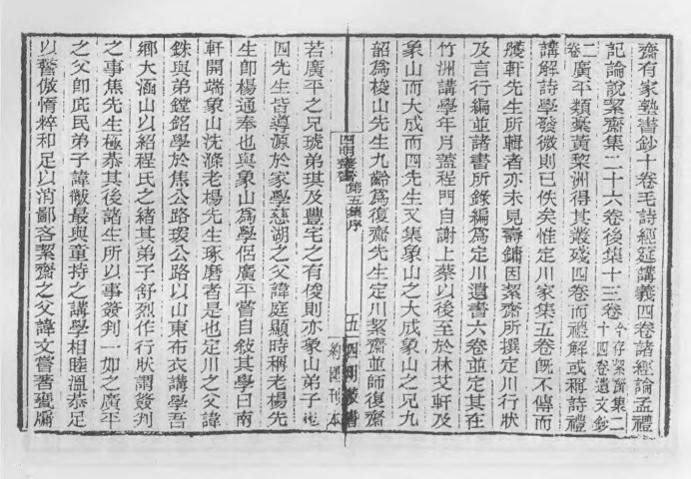 齋有家塾書鈔十卷毛詩經筵講義四卷諸經論孟禮
記論說絜齋集二十六卷後集十三卷今存絜齋集二十四卷遺文鈔
二卷廣平類稾黃黎洲得其叢殘四卷而禮解或稱詩禮
講解詩學發微則已佚矣惟定川家集五卷旣不傳而
軒先生所輯者亦未見壽鏞因絜齋所撰定川行狀
及言行編並諸書所錄編爲定川遺書六卷並定其在
竹洲講學年月蓋程門自謝上蔡以後至於林艾軒及
象山而大成而四先生又集象山之大成象山之兄九
韶爲梭山先生九齡爲復齋先生定川絜齋並師復齋
四明叢書 第五集序 五 四明叢書
約園刊本
若廣平之兄琥弟琪及豐宅之有俊則亦象山弟子也
四先生皆導源於家學慈湖之父諱庭顯時稱老楊先
生卽楊通奉也與象山爲學侶廣平嘗自敘其學曰南
軒開端象山洗滌老楊先生琢磨者是也定川之父諱
銖與弟鏜銘學於焦公路瑗公路以山東布衣講學吾
鄉大涵山以紹程氏之緒其弟子舒烈作行狀謂簽判
之事焦先生極恭其後諸生所以事簽判一如之廣平
之父卽庶民弟子諱黻最與童持之講學相睦溫恭足
以警傲惰粹和足以消鄙吝絜齋之父諱文嘗著甕牖